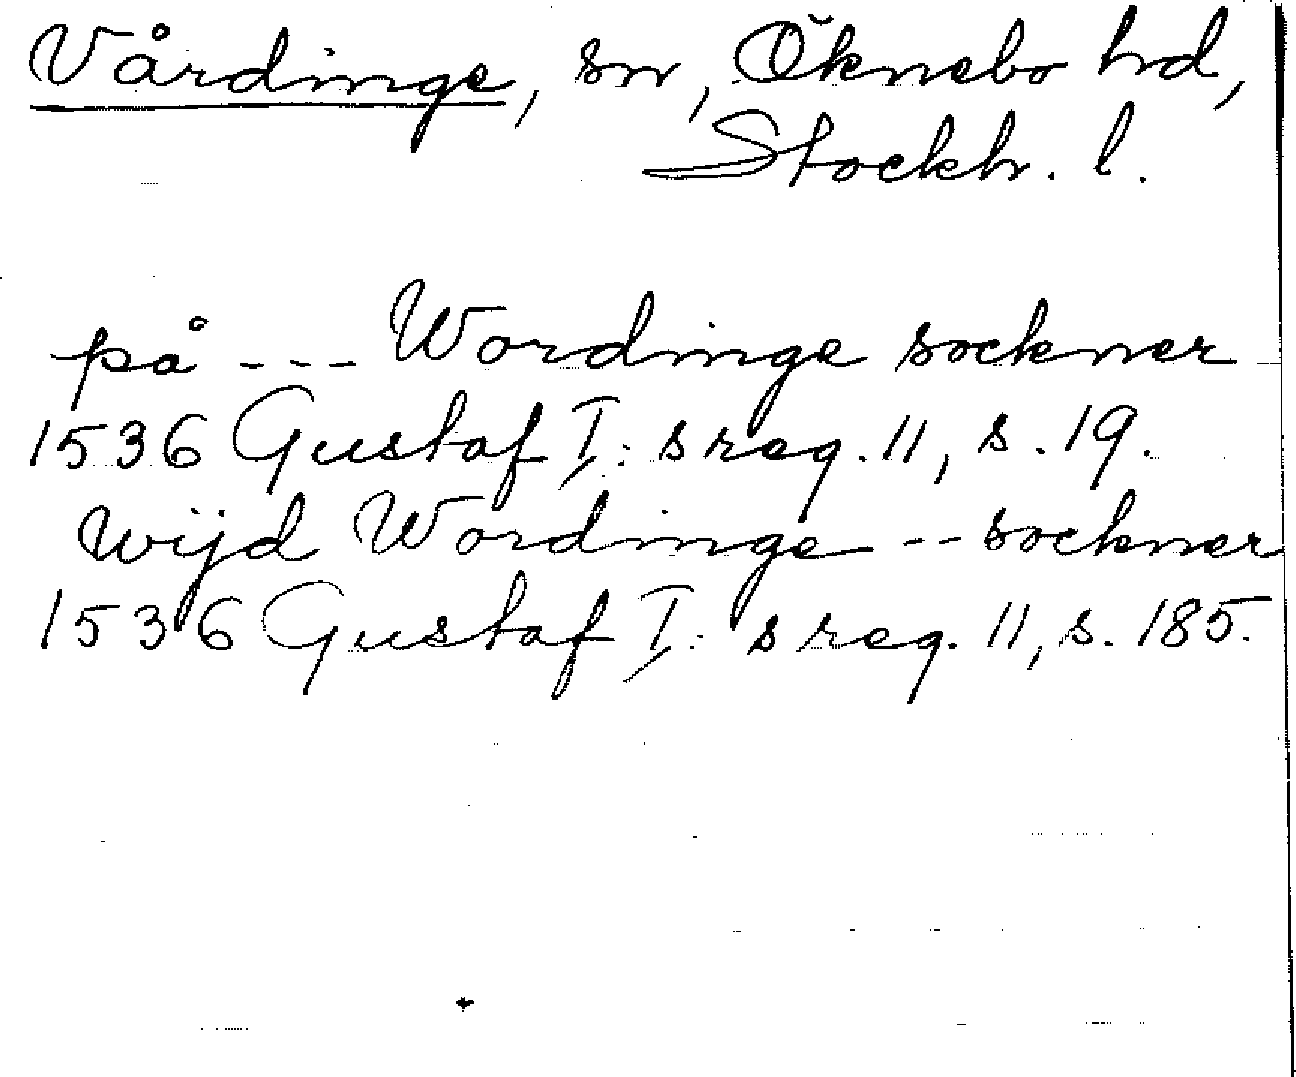 Vårdinge, sn, Öknebo hd,
Stockh. l.
på --- Wordinge sockner
1536 Gustaf I:s reg. 11, s. 19.
Wijd Wordinge -- sockner
1536 Gustaf I:s reg. 11, s. 185.